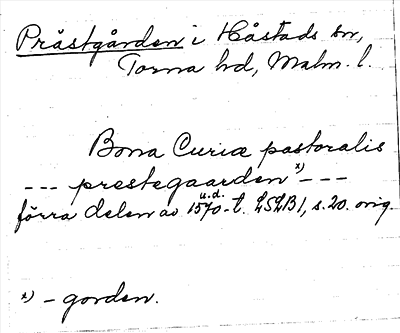 Prästgården i Håstads sn,
Torna hd, Malm. l.
Bona Curiæ pastoralis
--- prestegaarden x) ---
u.d.
förra delen av 1570-t. LSLB1, s. 20. orig.
x) - gorden.